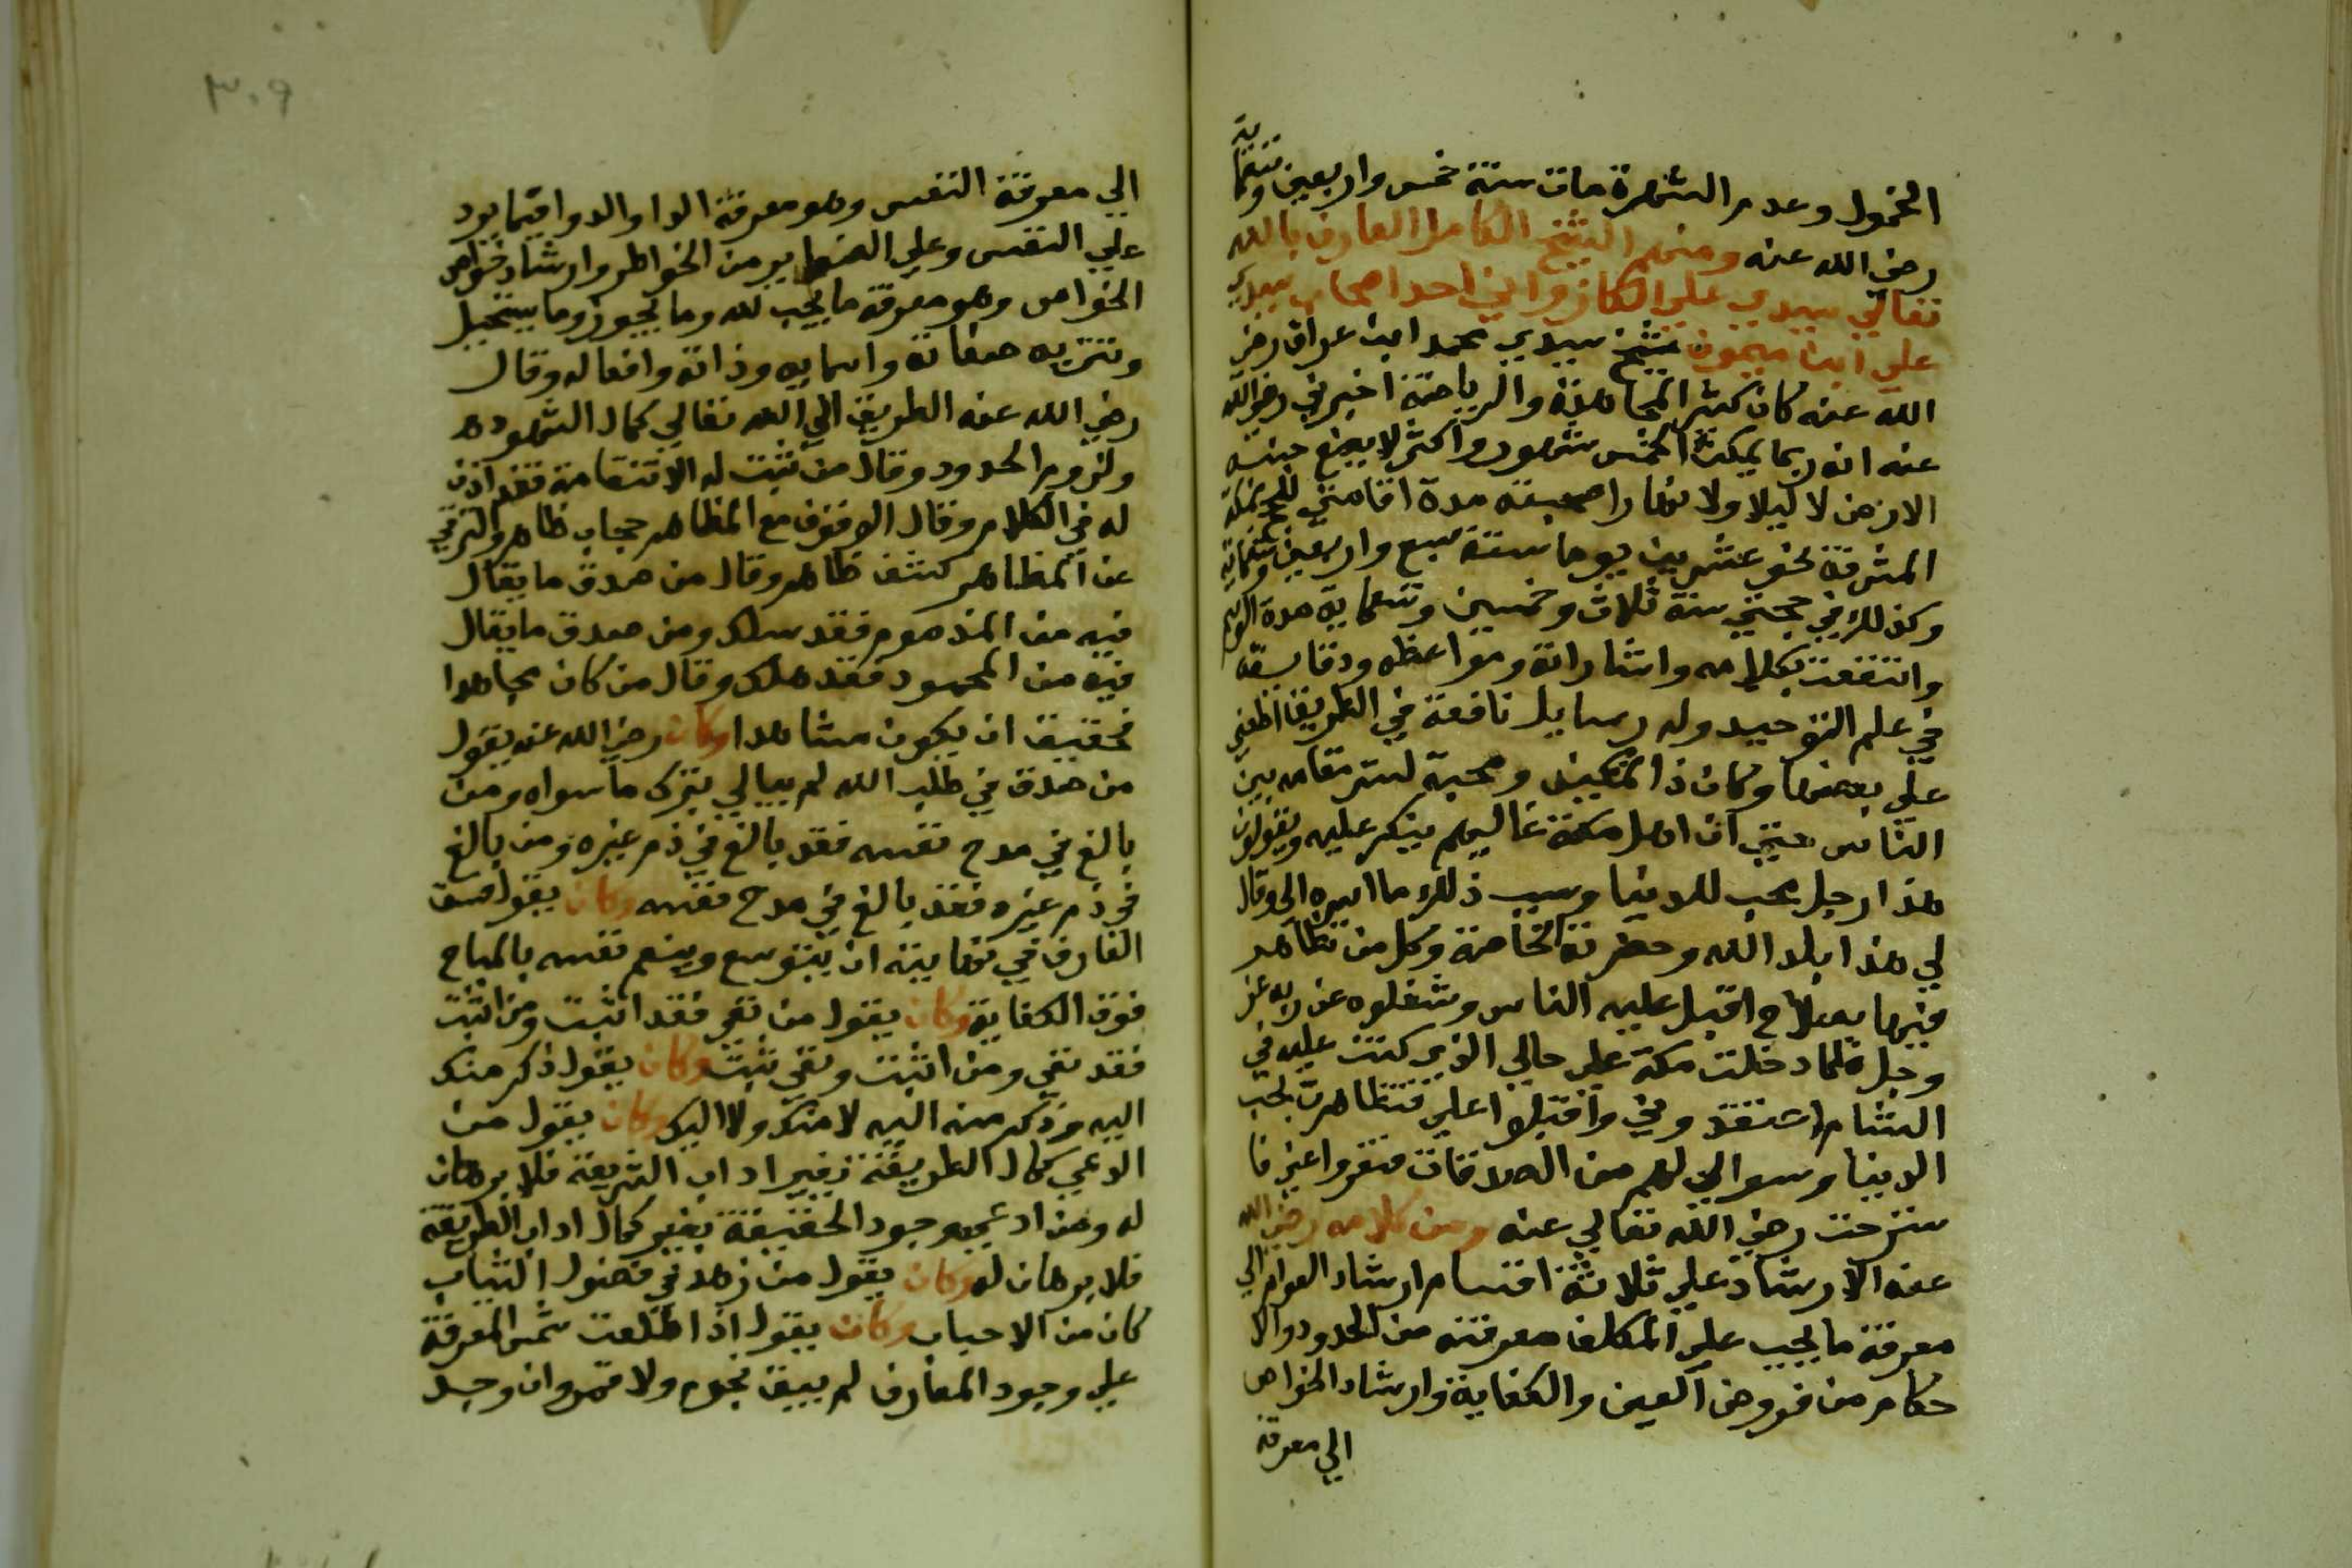 الخمول وعدم الشهرة مات سنة خمس واربعين وتسعماية
رضي الله عنه ومنهم الشيخ الكامل العارف بالله
تعالي سيدي علي الكازواني احد اصحاب سيدي
علي ابن ميمون شيخ سيدي محمد ابن عراق رضي
الله عنه كان كثير المجاهدة والرياضة اخبرني رضي الله
عنه انه ربما يمكث الخمس شهور واكثر لا يضع جنبه
الارض لا ليلا ولا نهارا صحبته مدة اقامتي بمكة
المشرفة نحو عشرين يوما سنة سبع واربعين وتسعماية
وكذلك في حجتي سنة ثلاث وخمسين وتسعماية مدة الموسم
وانتفعت بكلامه واشاراته ومواعظه ودقايقه
في علم التوحيد وله رسايل نافعة في الطريق اطلعني
علي بعضها وكان ذا تمكين ومحبة لستر مقامه بين
الناس حتي ان اهل مكة غالبهم ينكر عليه ويقولون
هذا رجل محب للدنيا وسبب ذلك ما اسره الي وقال
لي هذا بلد الله وحضرته الخاصة وكل من تظاهر
فيها بصلاح اقبل عليه الناس وشغلوه عن ربه عز
وجل فلما دخلت مكة علي حالي الذي كنت عليه في
الشام اعتقدوني واقبلوا علي فتظاهرت بحب
الدنيا وسوالي لهم من الصدقات فنفروا عني فا
سترحت رضي الله تعالي عنه ومن كلامه رضي الله
عنه الارشاد علي ثلاثة اقسام ارشاد العوام الي
معرفة ما يجب علي المكلف معرفته من الحدود والا
حكام من فروض العين والكفاية وارشاد الخواص
الي معرفة
٣٠٩
الي معرفة النفس وهو معرفة الدا والدوا فيما يرد
علي النفس وعلي الضماير من الخواطر وارشاد خواص
الخواص وهو معرفة ما يجب لله وما يجوز وما يستحيل
وتنزيه صفاته واسمايه وذاته وافعاله وقال
رضي الله عنه الطريق الي الله تعالي كمال الشهود
ولزوم الحدود وقال من ثبت له الاستقامة فقد اذن
له في الكلام وقال الوقوف مع المظاهر حجاب ظاهر والترقي
عن المظاهر كشف ظاهر وقال من صدق ما يقال
فيه من المذموم فقد سلك ومن صدق ما يقال
فيه من المحمود فقد هلك وقال من كان مجاهدا
فحقيق ان يكون مشاهدا وكان رضي الله عنه يقول
من صدق في طلب الله لم يبالي بترك ما سواه ومن
بالغ في مدح نفسه فقد بالغ في ذم غيره ومن بالغ
في ذم غيره فقد بالغ في مدح نفسه وكان يقول
العارف في نهايته ان يتوسع وينعم نفسه بالمباح
فوق الكفاية وكان يقول من نفي فقد اثبت ومن اثبت
فقد نفي ومن اثبت ونفي ثبت وكان يقول ذكر منك
اليه وذكر منه اليه لا منك ولا اليك وكان يقول من
ادعي كمال الطريقة بغير اداب الشريعة فلا برهان
له ومن ادعي وجود الحقيقة بغير كمال اداب الطريقة
فلا برهان له وكان يقول من زهد في فضول الثياب
كان من الاحباب وكان يقول اذا طلعت شمس المعرفة
علي وجود العارف لم يبق نجوم ولا قمر وان وجد